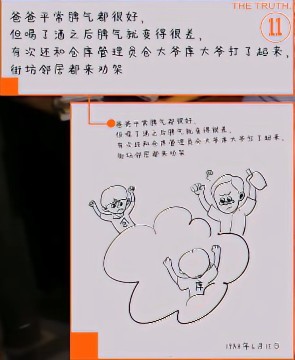 THE TRUTH.
11
爸爸平常脾气都很好，
但喝了酒之后脾气就变得很差，
有次还和仓库管理员仓大爷库大爷打了起来，
街坊邻居都来劝架
爸爸平常脾气都很好，
但喝了酒之后脾气就变得很差，
有次还和仓库管理员仓大爷库大爷打了起来，
街坊邻居都来劝架
库